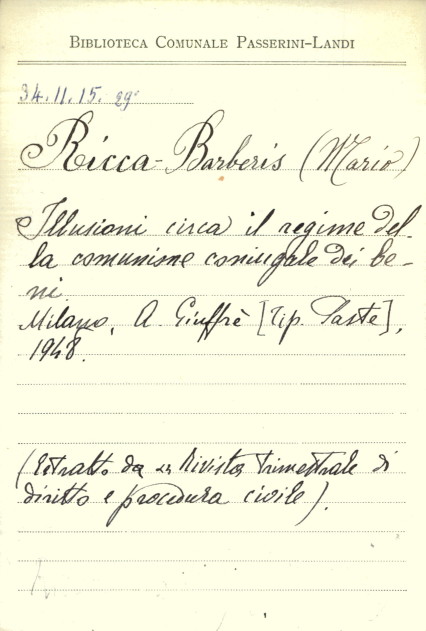 BIBLIOTECA COMUNALE PASSERINI-LANDI
34.II.15. 29°
Ricca-Barberis (Mario)
Illusioni circa il regime del-
la comunione coniugale dei be-
ni.
Milano, A. Giuffrè [Tip. Paste],
1948.
(Estratto da Rivista trimestrale di
diritto e procedura civile).